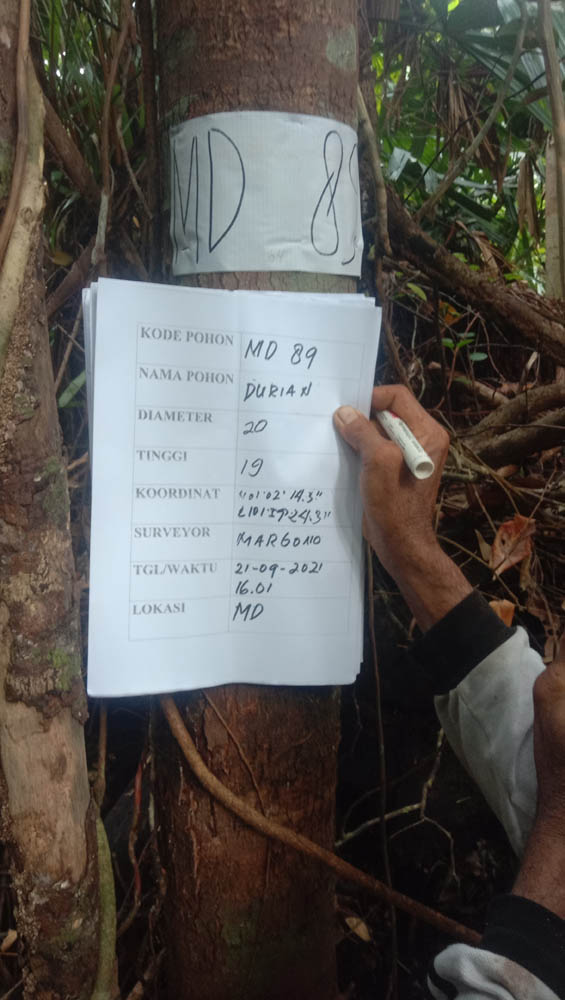 MD 89
KODE POHON MD 89
NAMA POHON DURIAN
DIAMETER 20
TINGGI 19
KOORDINAT "01°02' 14.3"
24.3"
SURVEYOR MARGONO
TGL/WAKTU 21-09-2021
16.01
LOKASI MD